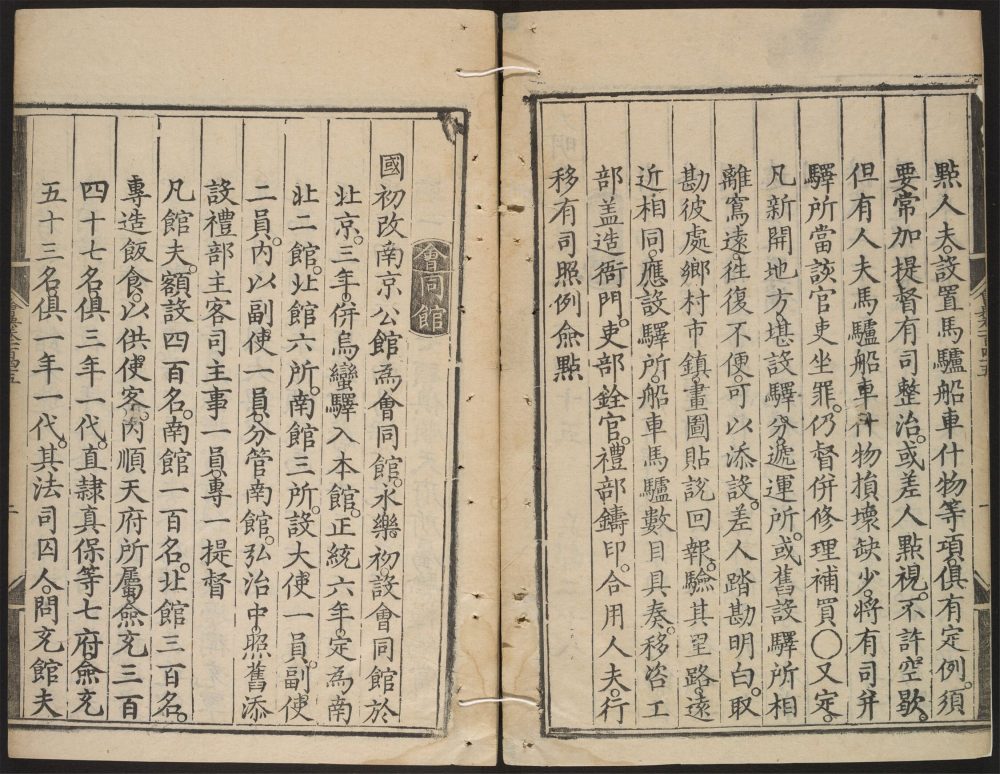 點人夫。設置馬驢船車什物等項。俱有定例。須
要常加提督有司整治。或差人點視。不許空歇。
但有人夫馬驢船車什物損壞缺少。將有司幷
驛所當該官吏坐罪。仍督併修理補買〇又定。
凡新開地方。堪設驛分遞運所。或舊設驛所相
離寫遠。徃復不便。可以添設。差人踏勘明白。取
勘彼處鄉村市鎮。畫圖貼說回報。驗其里路。遠
近相同。應設驛所。船車馬驢數目具奏。移咨工
部盖造衙門。吏部銓官。禮部鑄印。合用人夫。行
移有司照例僉點
會同館
國初改南京公館爲會同館。永樂初設會同館於
北京。三年。併烏蠻驛入本館。正統六年。定爲南
北二館。北館六所。南館三所。設大使一員。副使
二員。內以副使一員。分管南館。弘治中。照舊添
設禮部主客司主事一員。專一提督
凡館夫。額設四百名。南館一百名。北館三百名。
專造飯食。以供使客。內順天府所屬。僉充三百
四十七名。俱三年一代。直隷真保等七府。僉充
五十三名。俱一年一代。其法司囚人。問充館夫